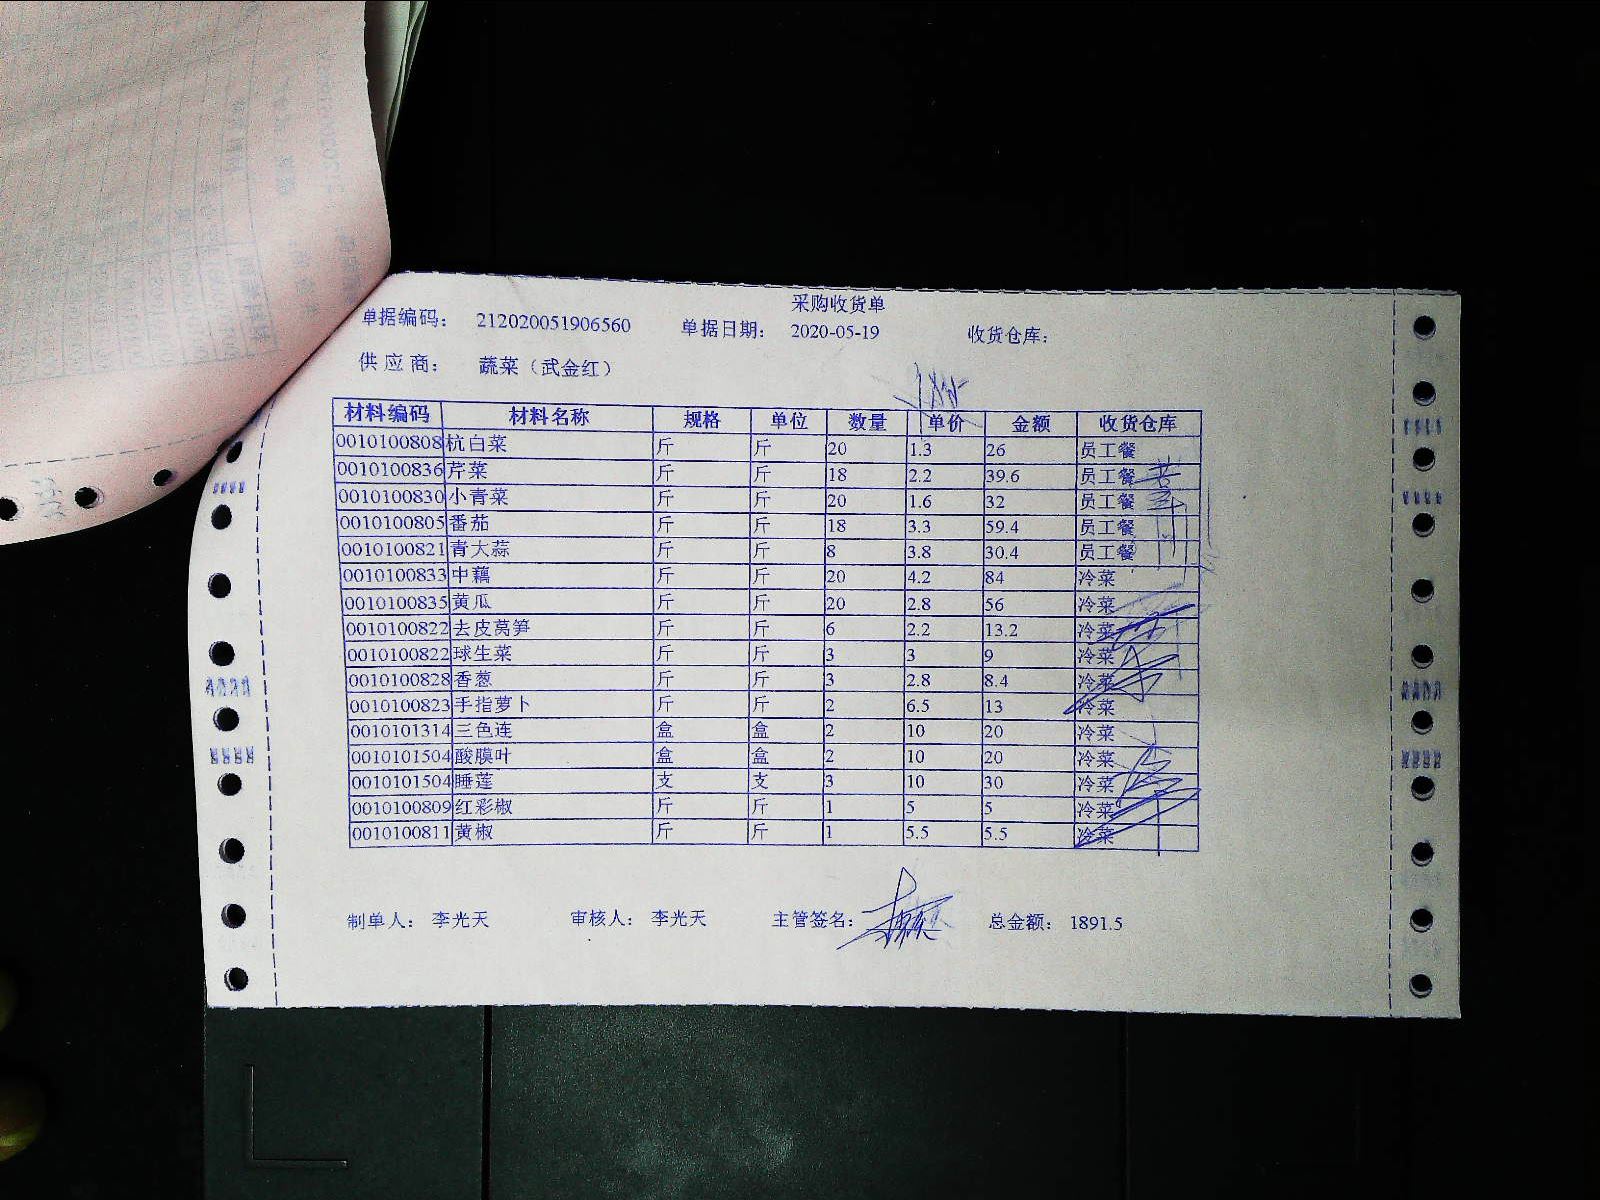 采购收货单
单据编码： 212020051906560 单据日期： 2020-05-19 收货仓库：
供应商： 蔬菜（武金红）
材料编码 材料名称 规格 单位 数量 单价 金额 收货仓库
0010100808 杭白菜 斤 斤 20 1.3 26 员工餐
0010100836 芹菜 斤 斤 18 2.2 39.6 员工餐
0010100830 小青菜 斤 斤 20 1.6 32 员工餐
0010100805 番茄 斤 斤 18 3.3 59.4 员工餐
0010100821 青大蒜 斤 斤 8 3.8 30.4 员工餐
0010100833 中藕 斤 斤 20 4.2 84 冷菜
0010100835 黄瓜 斤 斤 20 2.8 56 冷菜
0010100822 去皮莴笋 斤 斤 6 2.2 13.2 冷菜
0010100822 球生菜 斤 斤 3 3 9 冷菜
0010100828 香葱 斤 斤 3 2.8 8.4 冷菜
0010100823 手指萝卜 斤 斤 2 6.5 13 冷菜
0010101314 三色连 盒 盒 2 10 20 冷菜
0010101504 酸膜叶 盒 盒 2 10 20 冷菜
0010101504 睡莲 支 支 3 10 30 冷菜
0010100809 红彩椒 斤 斤 1 5 5 冷菜
0010100811 黄椒 斤 斤 1 5.5 5.5 冷菜
制单人： 李光天 审核人： 李光天 主管签名： 总金额： 1891.5